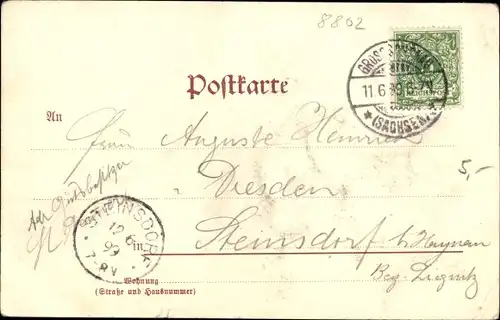 8802
Postkarte
11.6.99
(SACHSEN)
An
Frau Auguste Heinrich
Adr Gutsbesitzer
Dresden
5,-
STEINSDORF
12 6
99
7-8V
in
Steinsdorf b. Haynau
Bez. Liegnitz
Wohnung
(Straße und Hausnummer)